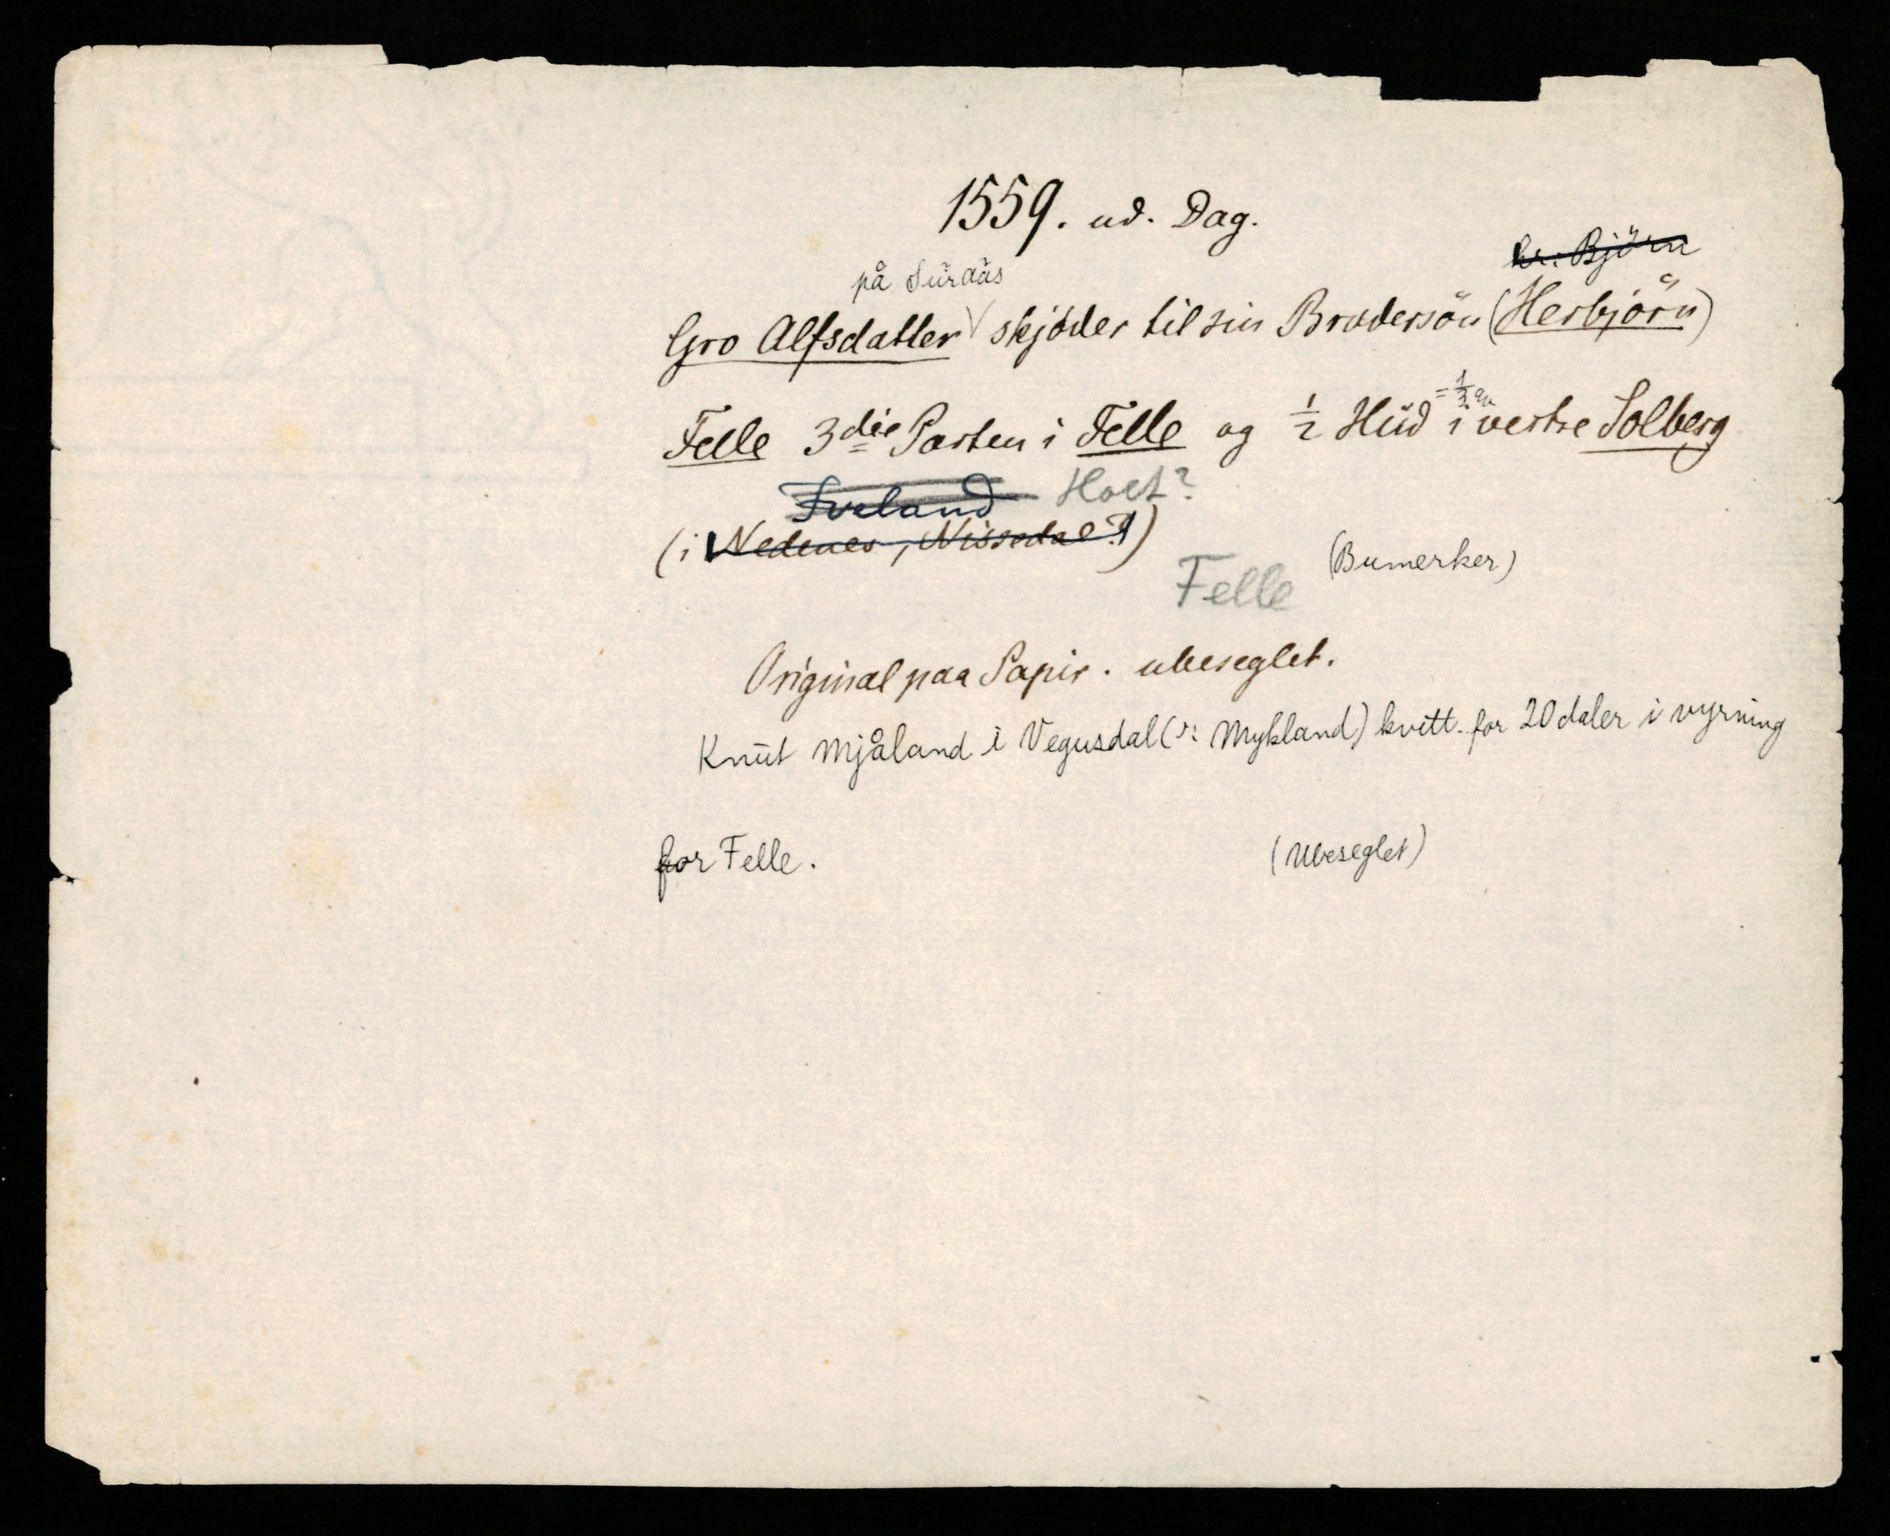 1559. ud. Dag.
på Suraås hr. Björn
Gro Alfsdatter skjöder til sin Brodersön (Herbjörn)
= 1/3 av
Felle 3die Parten i Felle og 1/2 Hud i vestre Solberg
Iveland Holt?
(i Nedenes, Nissedal?)
Felle (Bumerker)
Original paa Papir. ubeseglet.
Knut Mjåland i Vegusdal (ɔ: Mykland) kvitt. for 20 daler i vyrning
for Felle. (Ubeseglet)